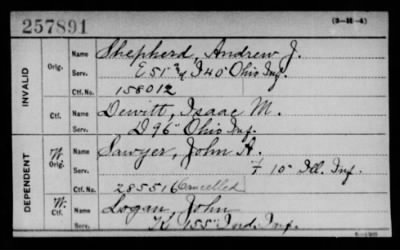 257891
(3-311-A)
INVALID
Orig.
Name Shepherd, Andrew J.
Serv. E 51" & I 40" Ohio Inf.
Ctf. No. 158012
Ctf.
Name Dewitt, Isaac M.
Serv. D 96" Ohio Inf.
DEPENDENT
W. Orig.
Name Sawyer, John A.
Serv. F 10" Ill. Inf.
Ctf. No. 285516 Cancelled
W. Ctf.
Name Logan, John
Serv. K 155" Ind. Inf.